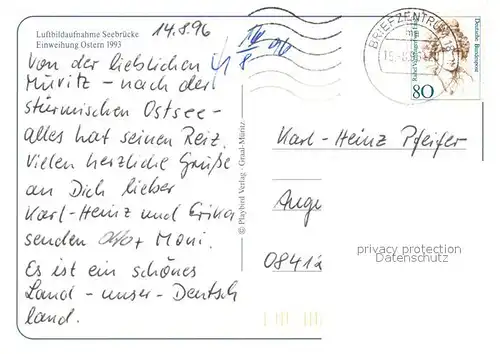 Luftbildaufnahme Seebrücke
Einweihung Ostern 1993
14.8.96
Von der lieblichen
Müritz – nach der
stürmischen Ostsee –
alles hat seinen Reiz.
Vielen herzliche Grüße
an Dich lieber
Karl-Heinz und Erika
senden Otto + Moni.
Es ist ein schönes
Land – unser – Deutsch
land.
© Playbird Verlag · Graal-Müritz
BRIEFZENTRUM 18
Deutsche Bundespost
80
Karl-Heinz Pfeifer
Auge
08412
privacy protection
Datenschutz